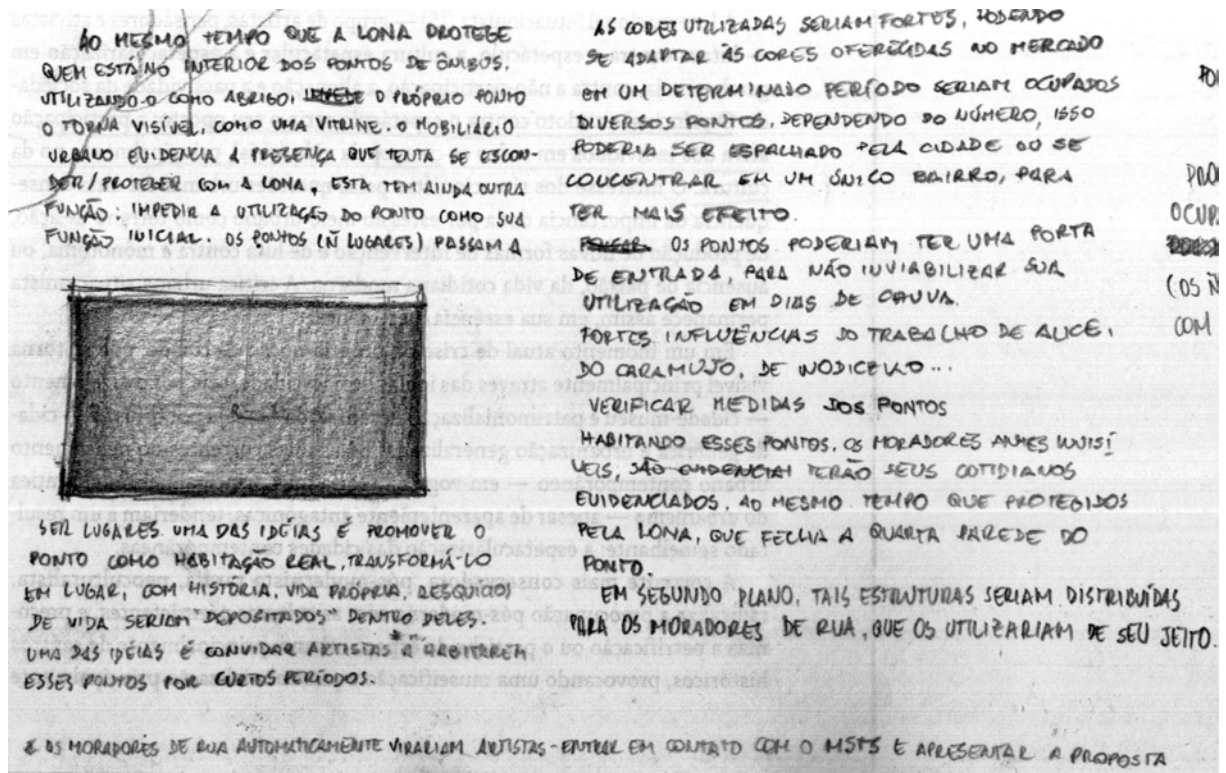 AO MESMO TEMPO QUE A LONA PROTEGE
QUEM ESTÁ NO INTERIOR DOS PONTOS DE ÔNIBUS,
UTILIZANDO-O COMO ABRIGO, O PRÓPRIO PONTO
O TORNA VISÍVEL, COMO UMA VITRINE. O MOBILIÁRIO
URBANO EVIDENCIA A PRESENÇA QUE TENTA SE ESCON-
DER/PROTEGER COM A LONA, ESTA TEM AINDA OUTRA
FUNÇÃO: IMPEDIR A UTILIZAÇÃO DO PONTO COMO SUA
FUNÇÃO INICIAL. OS PONTOS (Ñ LUGARES) PASSAM A
SER LUGARES. UMA DAS IDÉIAS É PROMOVER O
PONTO COMO HABITAÇÃO REAL, TRANSFORMÁ-LO
EM LUGAR, COM HISTÓRIA, VIDA PRÓPRIA, RESQUÍCIOS
DE VIDA SERIAM "DEPOSITADOS" DENTRO DELES.
UMA DAS IDÉIAS É CONVIDAR ARTISTAS A HABITAREM
ESSES PONTOS POR CURTOS PERÍODOS.
AS CORES UTILIZADAS SERIAM FORTES, PODENDO
SE ADAPTAR ÀS CORES OFERECIDAS NO MERCADO
EM UM DETERMINADO PERÍODO SERIAM OCUPADOS
DIVERSOS PONTOS, DEPENDENDO DO NÚMERO, ISSO
PODERIA SER ESPALHADO PELA CIDADE OU SE
CONCENTRAR EM UM ÚNICO BAIRRO, PARA
TER MAIS EFEITO.
PENSAR OS PONTOS PODERIAM TER UMA PORTA
DE ENTRADA PARA NÃO INVIABILIZAR SUA
UTILIZAÇÃO EM DIAS DE CHUVA.
FORTES INFLUÊNCIAS DO TRABALHO DE ALICE,
DO CARAMUJO, DE WODICZKO...
VERIFICAR MEDIDAS DOS PONTOS
HABITANDO ESSES PONTOS, OS MORADORES ANTES INVISÍ
VEIS, SÃO EVIDENCIAI TERÃO SEUS COTIDIANOS
EVIDENCIADOS, AO MESMO TEMPO QUE PROTEGIDOS
PELA LONA, QUE FECHA A QUARTA PAREDE DO
PONTO.
EM SEGUNDO PLANO, TAIS ESTRUTURAS SERIAM DISTRIBUÍDAS
PARA OS MORADORES DE RUA, QUE OS UTILIZARIAM DE SEU JEITO.
OCUPA
(OS Ñ
COM
& OS MORADORES DE RUA AUTOMATICAMENTE VIRARIAM ARTISTAS - ENTRAR EM CONTATO COM O MSTS E APRESENTAR A PROPOSTA